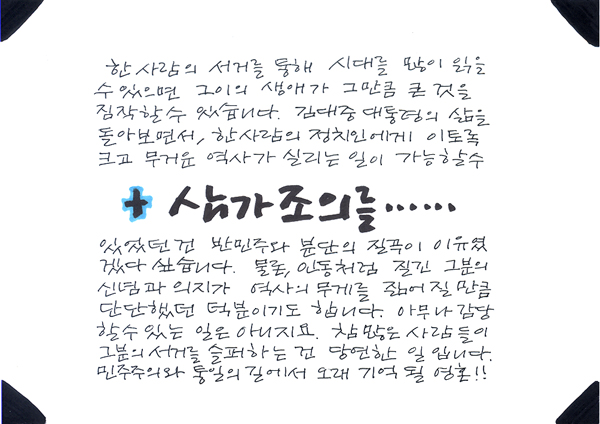 한 사람의 서거를 통해 시대를 많이 읽을
수 있으면 그이의 생애가 그만큼 큰 것을
짐작할 수 있습니다. 김대중 대통령의 삶을
돌아보면서, 한 사람의 정치인에게 이토록
크고 무거운 역사가 실리는 일이 가능할 수
+ 삼가 조의를……
있었던 건 반민주와 분단의 질곡이 이유였
겠다 싶습니다. 물론, 인동처럼 질긴 그분의
신념과 의지가 역사의 무게를 짊어질 만큼
단단했던 덕분이기도 합니다. 아무나 감당
할 수 있는 일은 아니지요. 참 많은 사람들이
그분의 서거를 슬퍼하는 건 당연한 일입니다.
민주주의와 통일의 길에서 오래 기억될 영혼!!